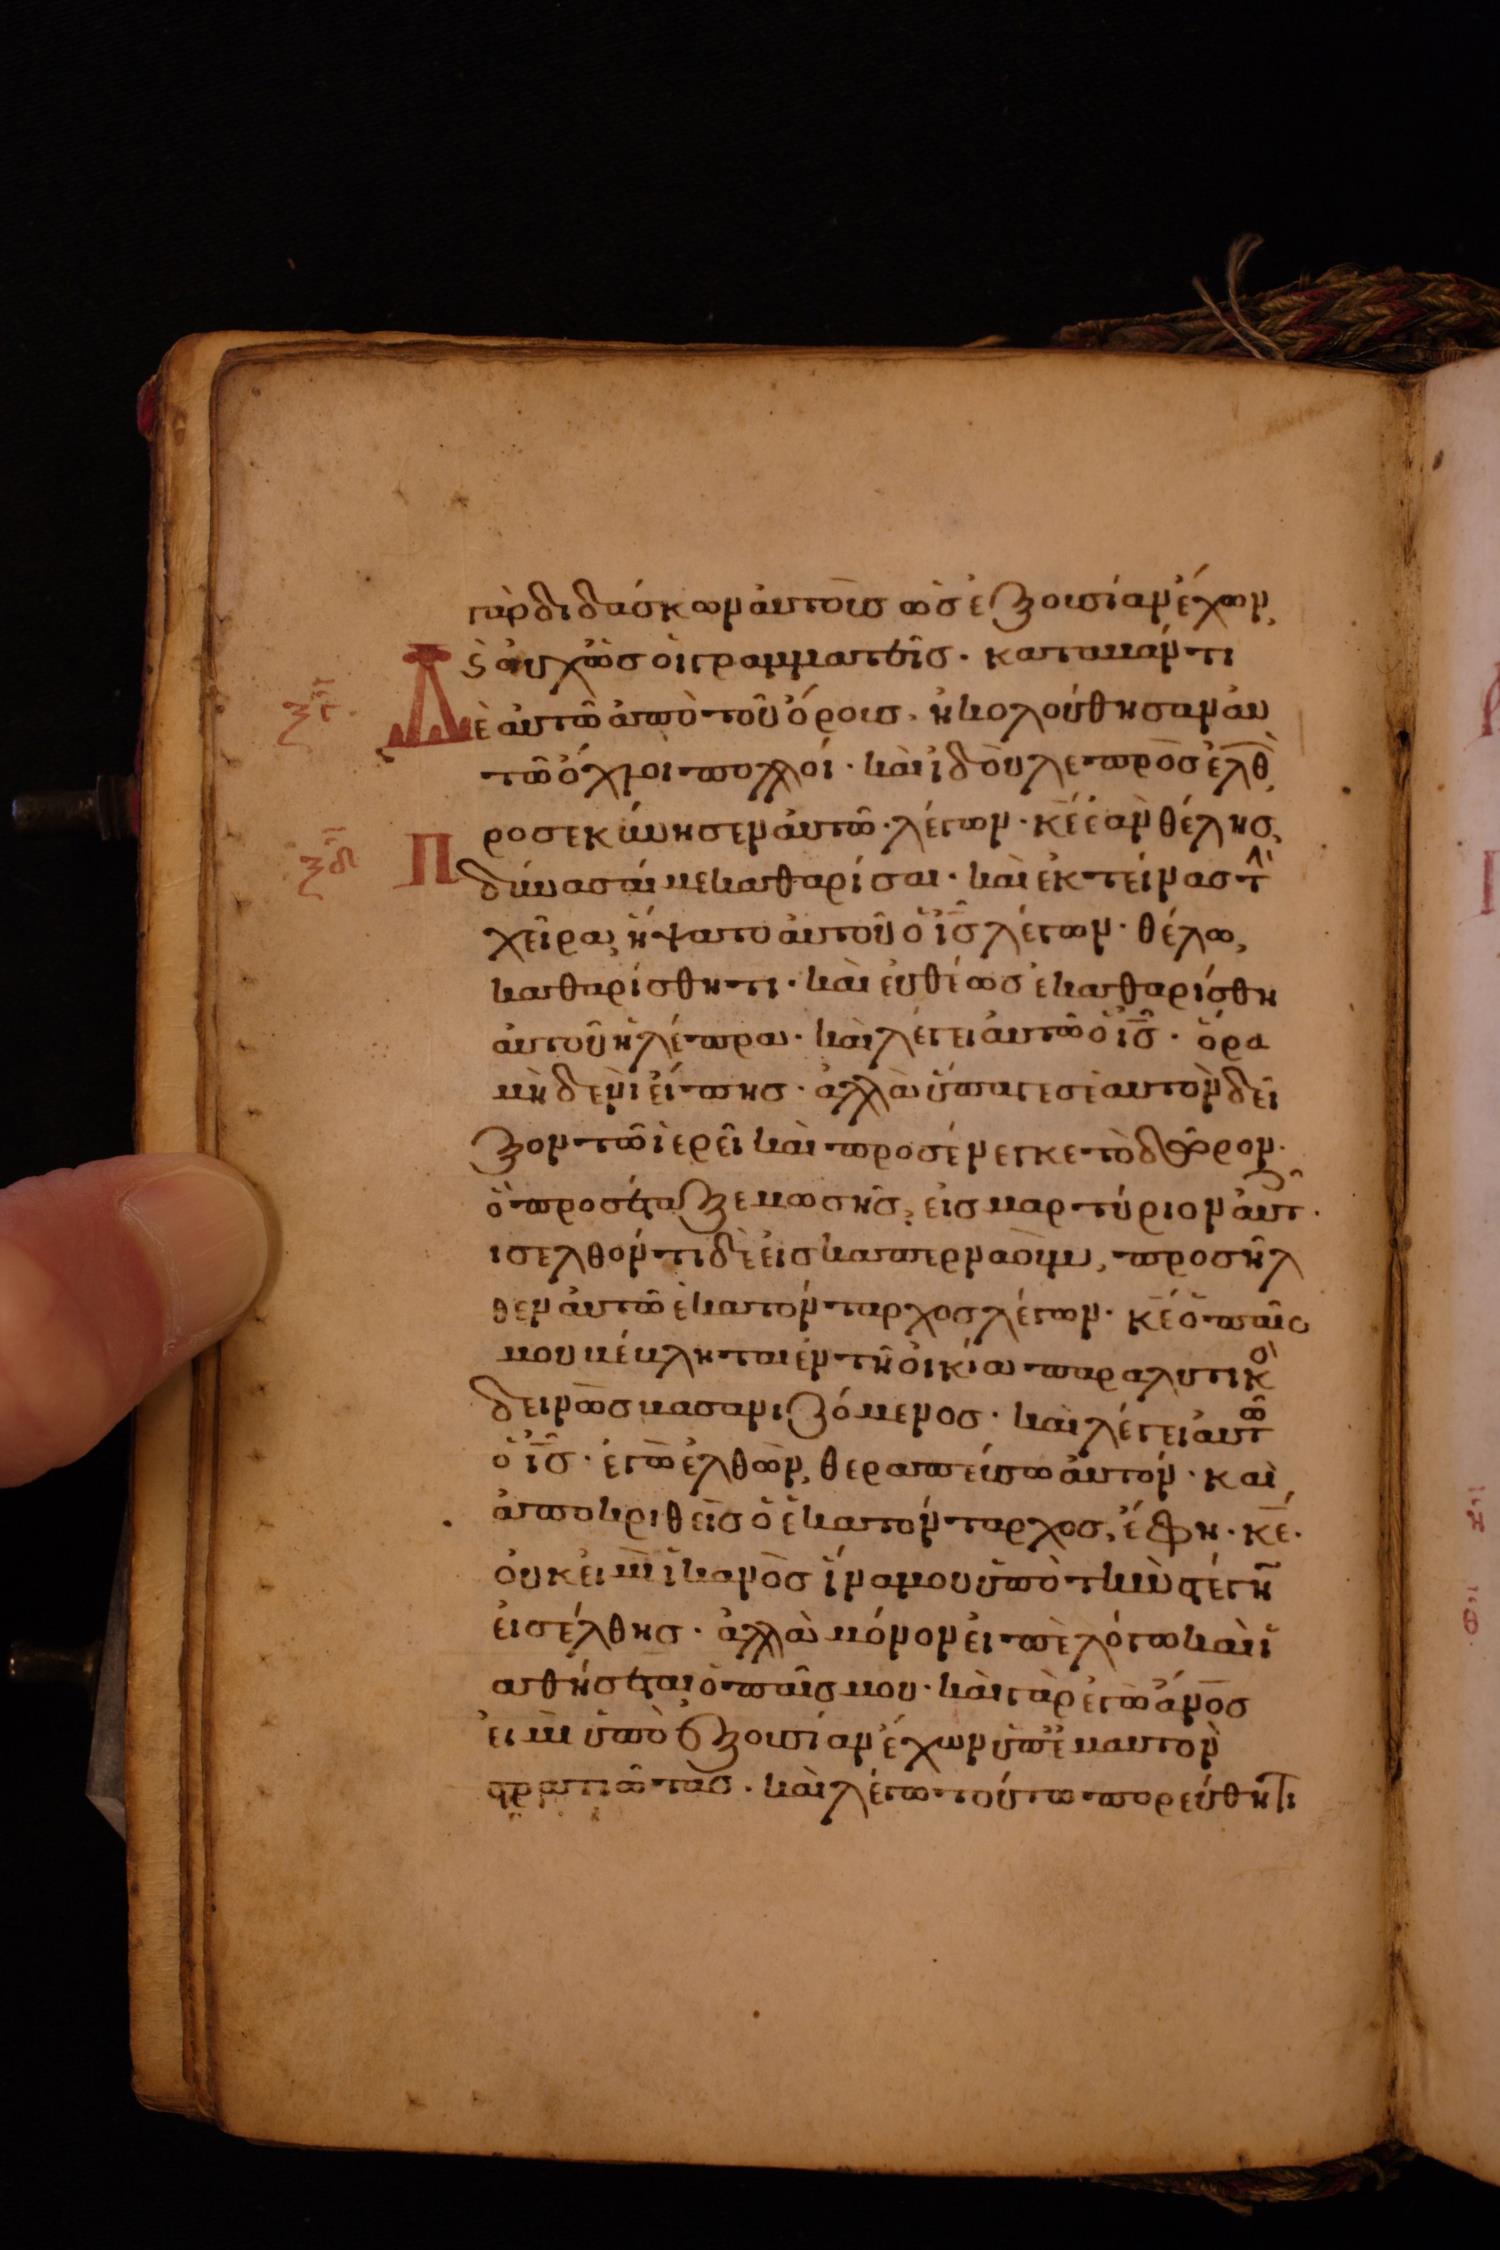 γὰρ διδάσκων ἀυτοὺς ὡς ἐξουσίαν ἔχων,
ϗ ὀυχ ὡς ὁι γραμματεῖς · καταβάντι
Δὲ ἀυτῶ ἀπὸ τοῦ ὄρους, ἠκολούθησαν ἀυ
τῶ ὄχλοι πολλοί · καὶ ἰδοὺ λεπρὸς ἐλθ̅,
Προσεκύνησεν ἀυτῶ · λέγων · κ̅ε̅ ἐὰν θέλης,
δύνασαί με καθαρίσαι · καὶ ἐκτείνας τ̀
χεῖρα, ἥψατο ἀυτοῦ ὁ ι̅ς̅ λέγων · θέλω,
καθαρίσθητι · καὶ ἐυθέως ἐκαθαρίσθη
ἀυτοῦ ἡ λέπρα · καὶ λέγει ἀυτῶ ὁ ι̅ς̅ · ὅρα
μηδενὶ εἴπης · ἀλλὰ ὕπαγε σεαυτὸν δεῖ
ξον τῶ ἱερεῖ καὶ προσένεγκε τὸ δῶρον ·
ὃ προσέταξε μωσῆς, εἰς μαρτύριον ἀυτ ·
ισελθόντι δὲ εἰς καπερναοὺμ, προσῆλ
θεν ἀυτῶ ἑκατόνταρχος λέγων · κ̅ε̅ ὁ παῖς
μου βέβληται ἐν τῆ ὀικία παραλυτικὸ
δεινῶς βασανιζόμενος · καὶ λέγει ἀυτῶ
ὁ ι̅ς̅ · ἐγὼ ἐλθὼν, θεραπεύσω ἀυτόν · καὶ
ἀποκριθεὶς ὁ ἑκατόνταρχος, ἔφη · κ̅ε̅ ·
ὀυκ εἰμὶ ἱκανὸς ἵνα μου ὑπὸ τὴν στέγη̅
εἰσέλθης · ἀλλὰ μόνον εἰπὲ λόγω καὶ ἰ
αθήσεται ὁ παῖς μου · καὶ γὰρ ἐγὼ ἄν̅ο̅ς
εἰμὶ ὑπὸ ἐξουσίαν ἔχων ὑπ' ἐμαυτὸν
στρατιώτας · καὶ λέγω τούτω πορεύθητι